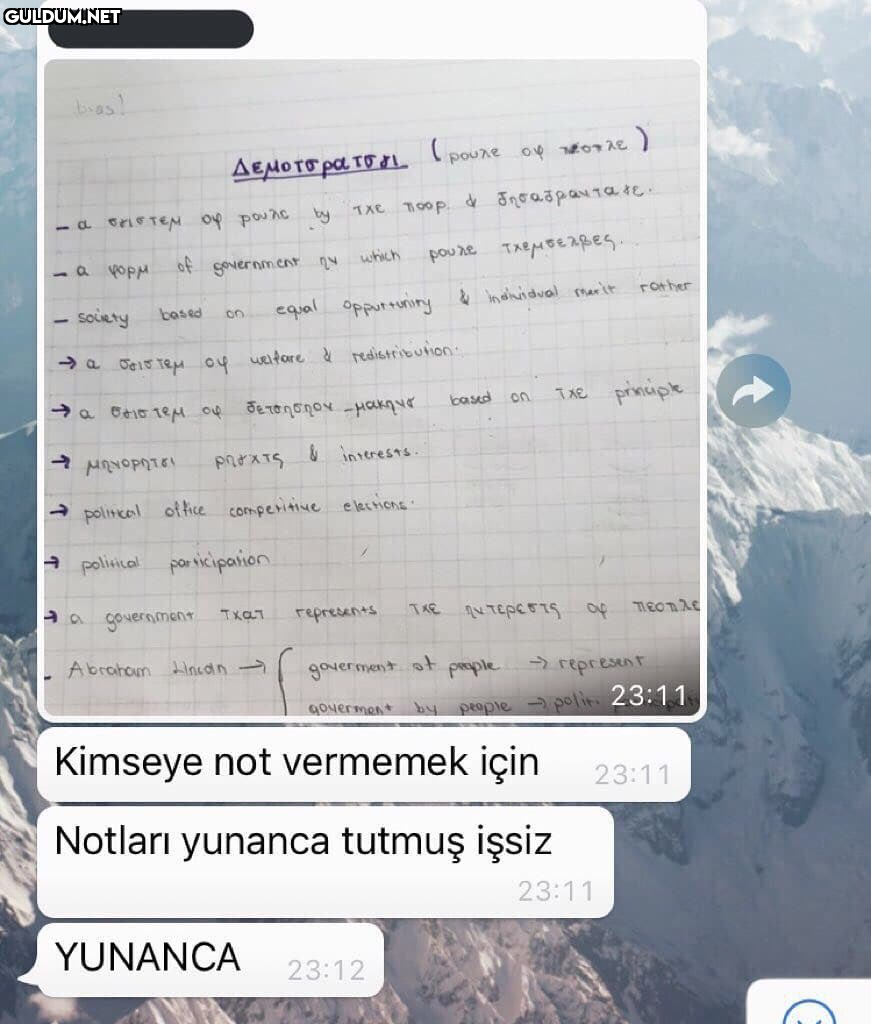 GULDUM.NET
bias!
Δεμοτσρατσι (ρουλε οφ πεοπλε)
- a σιστεμ οφ ρουλε by τχε ποορ &
- a φορμ of government ην which ρουλε τχεμσελβες.
- society based on equal oppurtunity & individual merit rather
→ a σιστεμ οφ welfare & redistribution.
→ a σιστεμ οφ -μακηνγ based on τχε principle
→ μηνορητι ρηγχτς & interests.
→ political office competitive elections.
→ political participation
→ a government τχατ represents τχε ηντερεστς οφ πεοπλε
- Abraham Lincoln → { goverment of people → represent
goverment by people → polit.
23:11
Kimseye not vermemek için 23:11
Notları yunanca tutmuş işsiz
23:11
YUNANCA 23:12